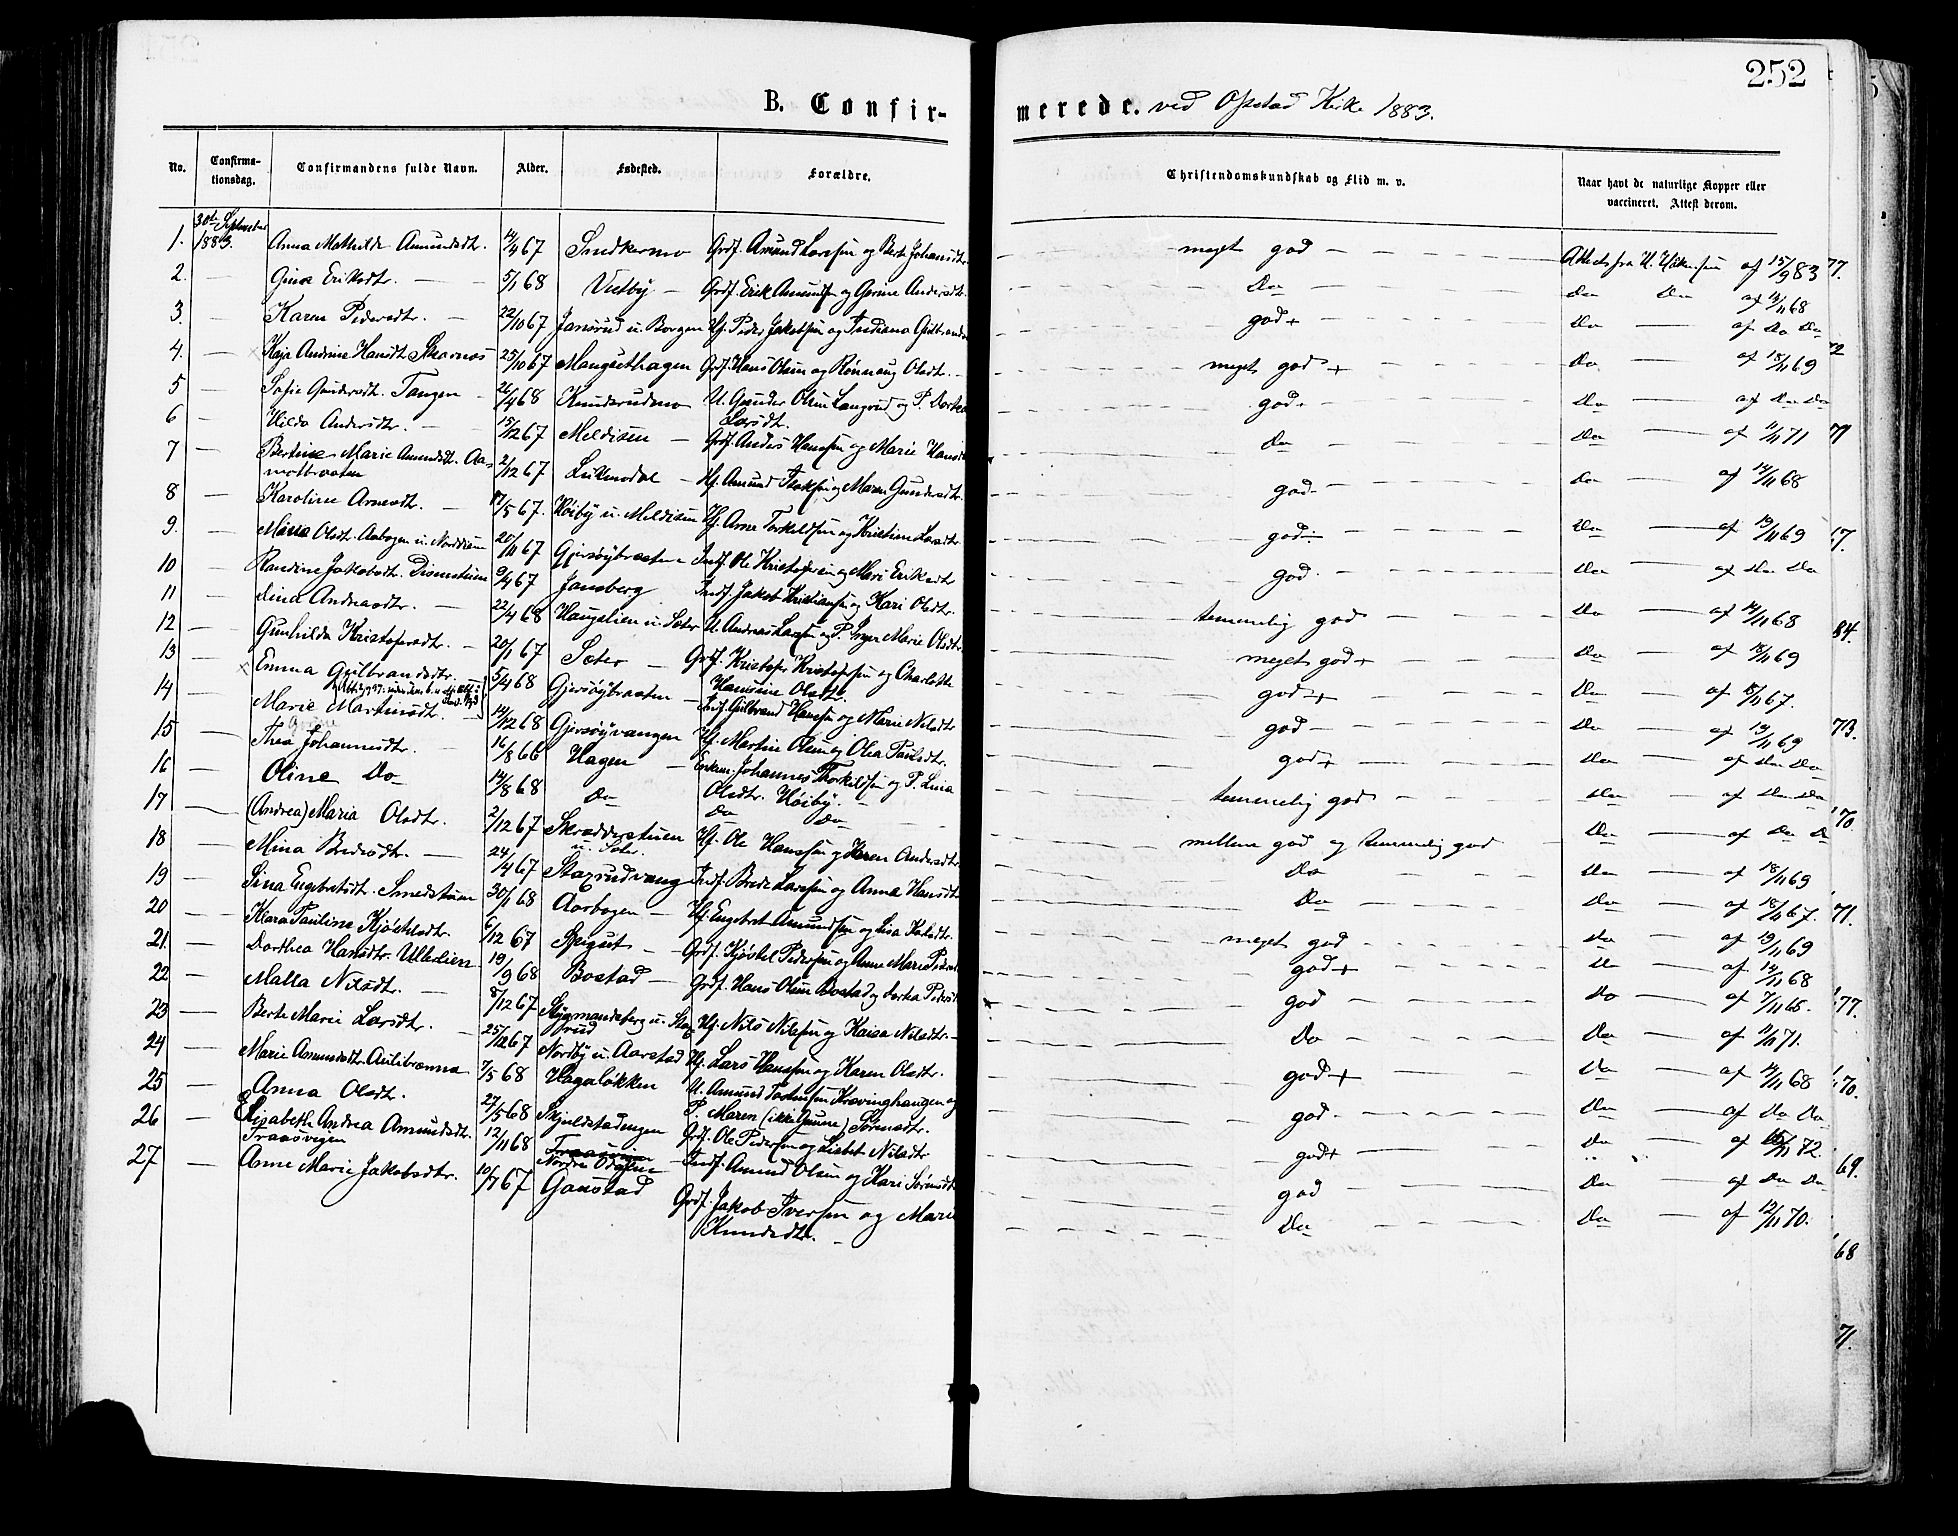 252
B. Confirmerede. ved Opstad Kirke 1883.
No. Confirmationsdag. Confirmandens fulde Navn. Alder. Fødested. Forældre. Christendomskundskab og Flid m. v. Naar havt de naturlige Kopper eller vaccineret. Attest derom.
1. 30te September 1883. Anna Mathilde Amundsdt. 14/4 67 Snekkermo Grdf. Amund Larssen og Berte Johansdtr. meget god 15/9 83 77.
2. Gina Eriksdt. 5/1 68 Vestby Grdf. Erik Amundsen og Gurine Andersdt. Do Do Do af 14/11 68
3. Karen Pedersdtr. 22/10 67 Jansrud u. Borgen Hf. Peder Jakobsen og Indiana god + Do af Do Do
4. Kaja Andrine Hansdt. Skarnæs 25/10 67 Mangsethagen Grdf. Hans Olsen og Rønnaug Olsdt. meget god + Do af 18/11 69
5 Sofie Gundersdt. Tangen 26/4 68 Knudsrudmo U. Gunder Olsen Langrud og P. Dorthea Larsdt. god + Do af Do Do
6 Hilda Andersdtr. 15/12 67 Meldisen Grdf. Anders Hanssen og Marie Hansdt Do Do af 11/11 71 71
7 Bertine Marie Amundsdt. Aamottbraaten 2/12 67 Lükmodal Hf. Amund Isaksen og Maren Gundersdtr. god Do af 14/11 68
8 Karoline Arnesdt. 17/5 67. Høiby u. Meldisen Hf. Arne Torkildsen og Kristine Larsdtr. god Do af 19/11 69 67.
9. Maria Olsdt. Aabogen u. Norddisen 20/11 67 Gjersøybraaten Indf. Ole Kristofersen og Mari Eriksdtr god Do af Do Do
10 Randine Jakobsdt. Disenstuen 9/4 67 Jansberg Indf. Jakob Kristiansen og Kari Olsdtr. temmelig god Do af 14/11 68
11 Lina Andreasdtr. 22/4 68 Haugslien u. Sæter U. Andreas Larssen og P. Inger Marie Olsdtr. meget god + Do af 18/11 69 84.
12 Gunhilda Kristofersdt. 20/1 67 Sæter Grdf. Kristofer Kristofersen og Charlotte Hansine Olsdt. god + Do af 18/11 67.
13 Emma Gulbrandsdtr. 5/4 68 Gjersøybraaten Indf. Gulbrand Hanssen og Marie Nilsdtr god Do af 19/11 69 73.
14 Marie Martinsdt. 14/12 68 Gjersøyvangen Hf. Martin Olsen og Olea Paulsdtr. god + Do af Do Do
15 Thea Johannesdtr. 16/8 66 Hagen Enkem. Johannes Torkildsen og P. Lina Olsdtr. Høiby. temmelig god Do af Do Do
16 Oline Do 14/8 68 Do Do Do 70.
17 (Andrea) Maria Olsdtr. 2/12 67 Skrædderstuen u. Sæter. Hf. Ole Hanssen og Karen Andersdtr mellem god og temmelig god Do af Do Do
18 Mina Bredesdtr. 24/4 67 Staxrudvang Indf. Brede Larssen og Anna Hansdt Do Do af 18/11 69
19 Sina Engebretsdt. Smedstuen 30/1 68 Aarbogen Hf. Engebret Amundsen og Lisa Do Do af 18/11 67. 71.
20 Klara Pauline Kjøstelsdtr. 6/12 67 Spigset Grdf. Kjøstel Pedersen og Anne Marie meget god Do af 19/11 69
21. Dorthea Hansdtr. Ullelien 19/9 68 Bostad Grdf. Hans Olsen Bostad og Dorthea Pedersdt god + Do af 14/11 68
22 Malla Nilsdtr. 8/12 67 Sygmandsberg u. Staxrud Hf. Nils Nilssen og Kaisa Nilsdtr. god Do af 7/11 65. 77.
23 Berte Marie Larsdt. 25/12 67 Nordby u. Aarstad Hf. Lars Hanssen og Karen Olsdtr. Do Do af 11/11 71.
24 Marie Amundsdt. 7/5 68 Hagaløkken U. Amund Torstensen Kravinghaugen og P. Maren (ikke Gunne) Sørensdtr. god + Do af 14/11 68 70.
25 Anna Olsdt. 27/5 68 Skjulstadengen Grdf. Ole Pedersen og Lisbet Nilsdtr god Do af Do Do
26 Elisabeth Andrea Amundsdt. Traasvigen 12/11 68 Nordre Odalen Indf. Amund Olsen og Kari Sørensdt god + Do af 15/11 72. 69.
27 Anne Marie Jakobsdtr. 10/7 67 Gaustad Grdf. Jakob Iversen og Marie Knudsdtr. god Do af Do Do
Do Do af 12/11 70.
68
71.